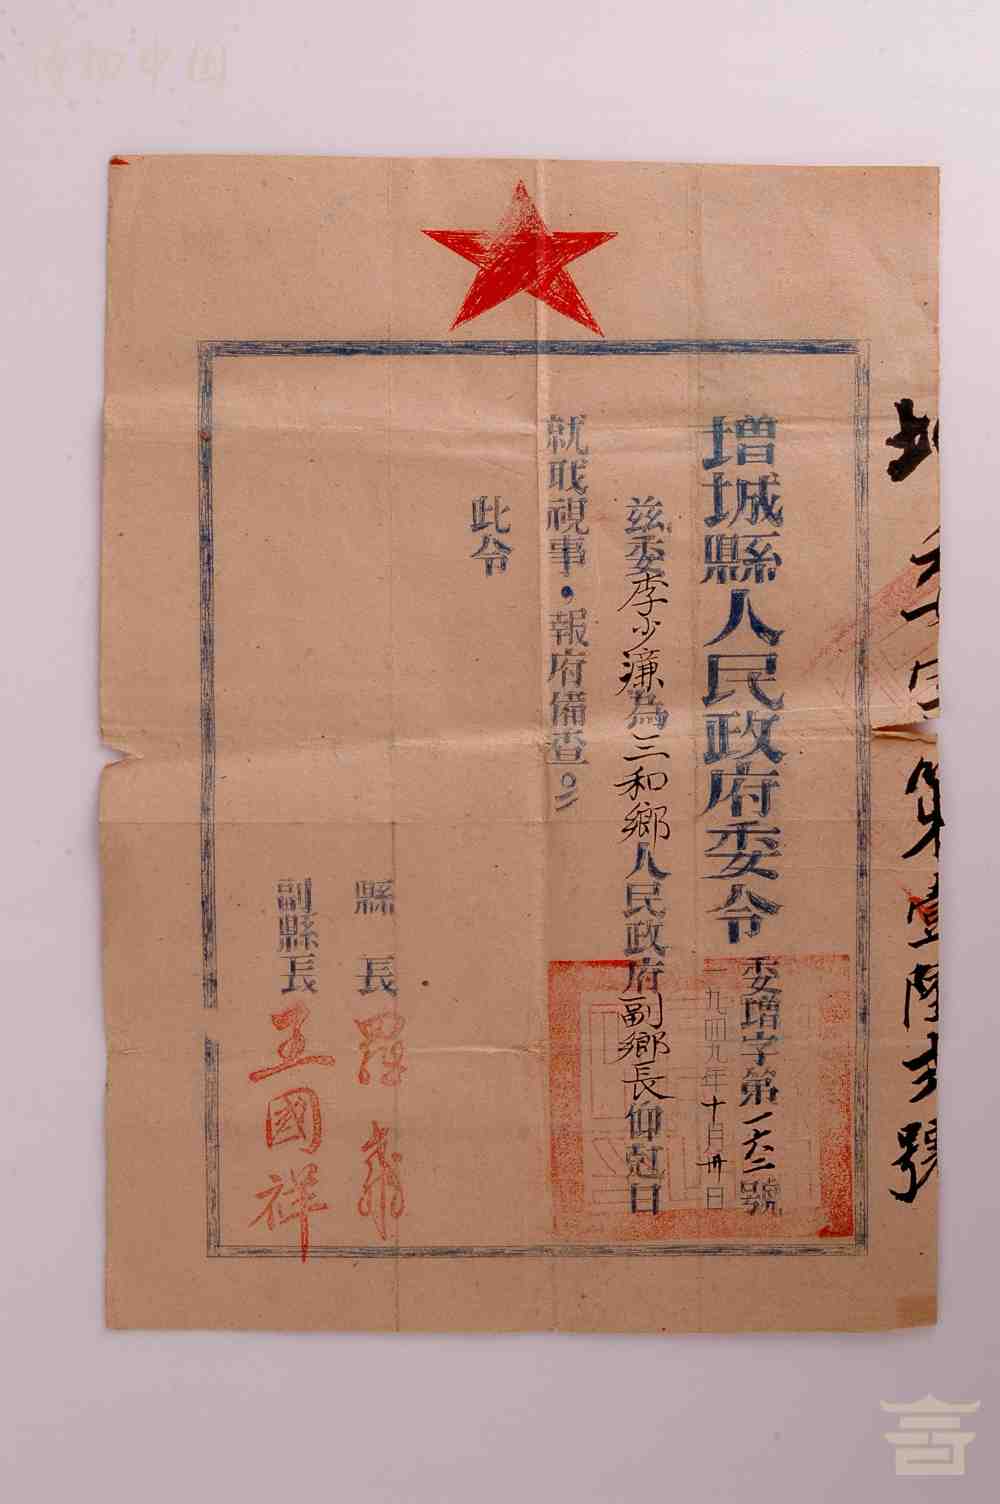 增城縣人民政府委令
委增字第一六二號
一九四九年十月卅日
茲委李少濂為三和鄉人民政府副鄉長仰尅日
就职視事，報府備查。
此令
縣長
副縣長 王國祥
字第壹陸弍號
博物中国